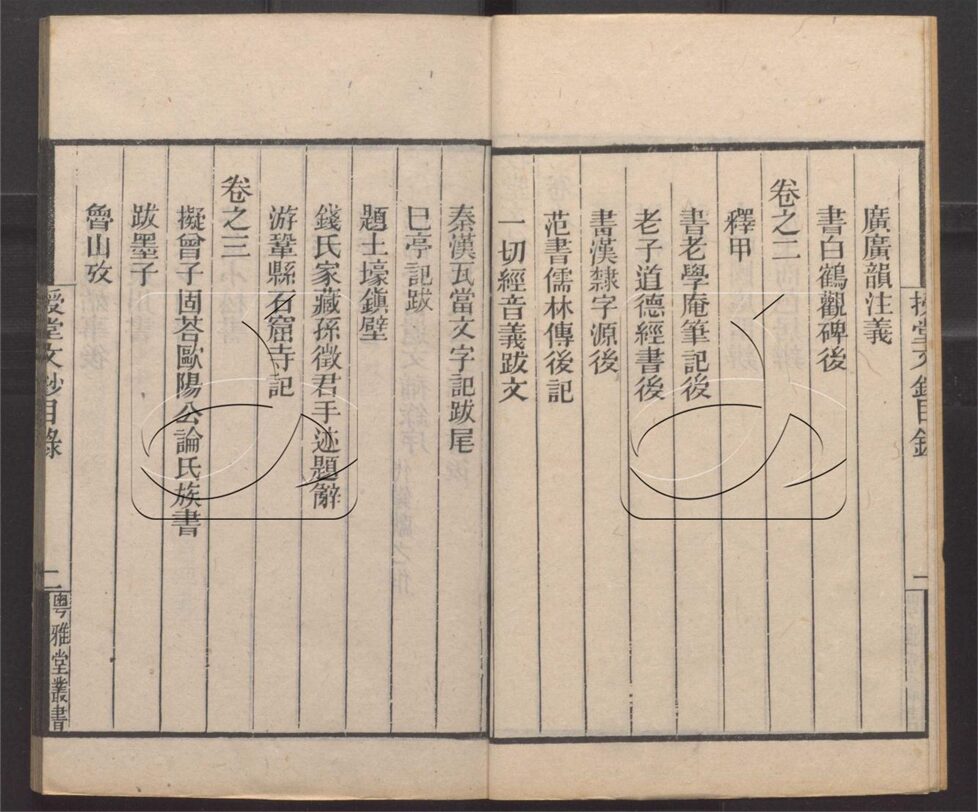 廣廣韻注義
書白鶴觀碑後
卷之二
釋甲
書老學庵筆記後
老子道德經書後
書漢隸字源後
范書儒林傳後記
一切經音義跋文
秦漢瓦當文字記跋尾
巳亭記跋
題土壕鎮壁
錢氏家藏孫徵君手迹題辭
游鞏縣石窟寺記
卷之三
擬曾子固荅歐陽公論氏族書
跋墨子
魯山攷
授堂文鈔目錄
二
粵雅堂叢書